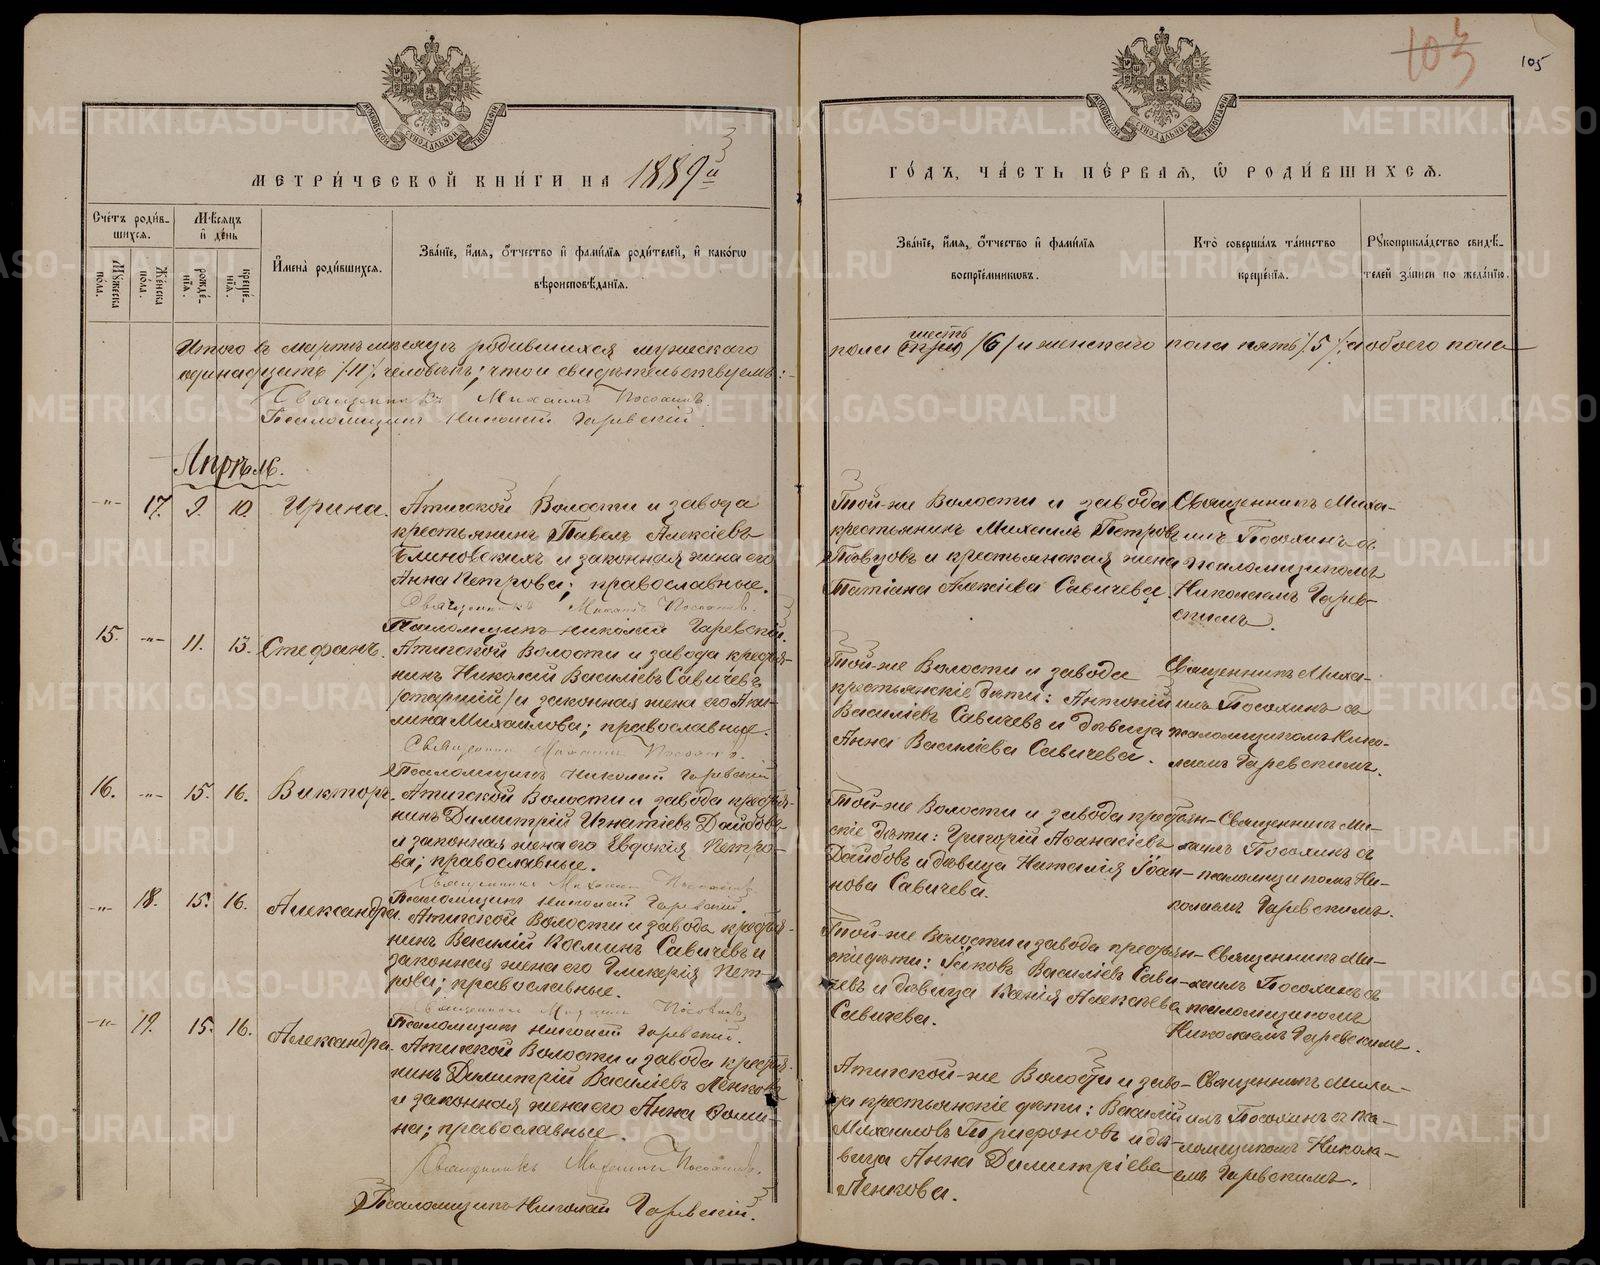 103
105
МЕТРИ́ЧЕСКОЙ КНИ́ГИ НА 1889й
ГО́ДЪ, ЧА́СТЬ ПЕ́РВАЯ, Ѡ РОДИ́ВШИХСЯ.
Сче́тъ роди́в-
шихся.
Му́жеска
по́ла.
Же́нска
по́ла.
Мѣ́сяцъ
и҆ де́нь
рожде́-
нїя.
креще́-
нїя.
И҆мена̀ роди́вшихся.
Зва́нїе, и҆́мя, ѻ҆́тчество и҆ фами́лїя роди́телей, и҆ како́гѡ
вѣроисповѣ́данїя.
Зва́нїе, и҆́мя, ѻ҆́тчество и҆ фами́лїя
воспрїе́мниковъ.
Кто̀ соверша́лъ та́инство
креще́нїя.
Рꙋкоприкла́дство свидѣ́-
телей за́писи по жела́нїю.
Итого въ мартѣ мѣсяцѣ родившихся мужескаго
пола шесть /6/ и женскаго пола пять /5/, а обоего пола
одинадцать /11/ человѣкъ; что и свидѣтельствуемъ:
Священникъ Михаилъ Посохинъ.
Псаломщикъ Николай Гаревскій
Апрѣль.
-"- 17. 9. 10. Ирина.
Атигской Волости и завода
крестьянинъ Павелъ Алексѣевъ
Блиновскихъ и законная жена его
Анна Петрова; православные.
Священникъ Михаилъ Посохинъ.
Псаломщикъ Николай Гаревскій.
Той-же Волости и завода
крестьянинъ Михаилъ Петровъ
Пѣвцовъ и крестьянская жена
Татіана Алексѣева Савичева.
Священникъ Миха-
илъ Посохинъ съ
псаломщикомъ
Николаемъ Гарев-
скимъ.
15. -"- 11. 13. Стефанъ.
Атигской Волости и завода крестья-
нинъ Николай Василіевъ Савичевъ
/старшій/ и законная жена его Аки-
лина Михайлова; православные.
Священникъ Михаилъ Посохинъ.
Псаломщикъ Николай Гаревскій
Той-же Волости и завода
крестьянскіе дѣти: Антоній
Василіевъ Савичевъ и дѣвица
Анна Василіева Савичева.
Священникъ Миха-
илъ Посохинъ съ
псаломщикомъ Нико-
лаемъ Гаревскимъ.
16. -"- 15. 16. Викторъ.
Атигской Волости и завода крестья-
нинъ Димитрій Игнатіевъ Дайбовъ
и законная жена его Евдокія Петро-
ва; православные.
Священникъ Михаилъ Посохинъ
Псаломщикъ Николай Гаревскій.
Той-же Волости и завода крестьян-
скіе дѣти: Григорій Аѳанасіевъ
Дайбовъ и дѣвица Наталія Іоан-
нова Савичева.
Священникъ Ми-
хаилъ Посохинъ съ
псаломщикомъ Ни-
колаемъ Гаревскимъ.
-"- 18. 15. 16. Александра.
Атигской Волости и завода крестья-
нинъ Василій Косминъ Савичевъ и
законная жена его Гликерія Пет-
рова; православные.
Священникъ Михаилъ Посохинъ
Псаломщикъ Николай Гаревскій.
Той-же Волости и завода крестьян-
скіе дѣти: Іаковъ Василіевъ Сави-
чевъ и дѣвица Ксенія Алексѣева
Савичева.
Священникъ Ми-
хаилъ Посохинъ съ
псаломщикомъ
Николаемъ Гаревскимъ.
-"- 19. 15. 16. Александра.
Атигской Волости и завода крестья-
нинъ Димитрій Василіевъ Пенковъ
и законная жена его Анна Ѳоми-
на; православные.
Священникъ Михаилъ Посохинъ.
Псаломщикъ Николай Гаревскій.
Атигской-же Волости и заво-
да крестьянскіе дѣти: Василій
Михаиловъ Трифоновъ и дѣ-
вица Анна Димитріева
Пенкова.
Священникъ Миха-
илъ Посохинъ съ пса-
ломщикомъ Никола-
емъ Гаревскимъ.
METRIKI.GASO-URAL.RU